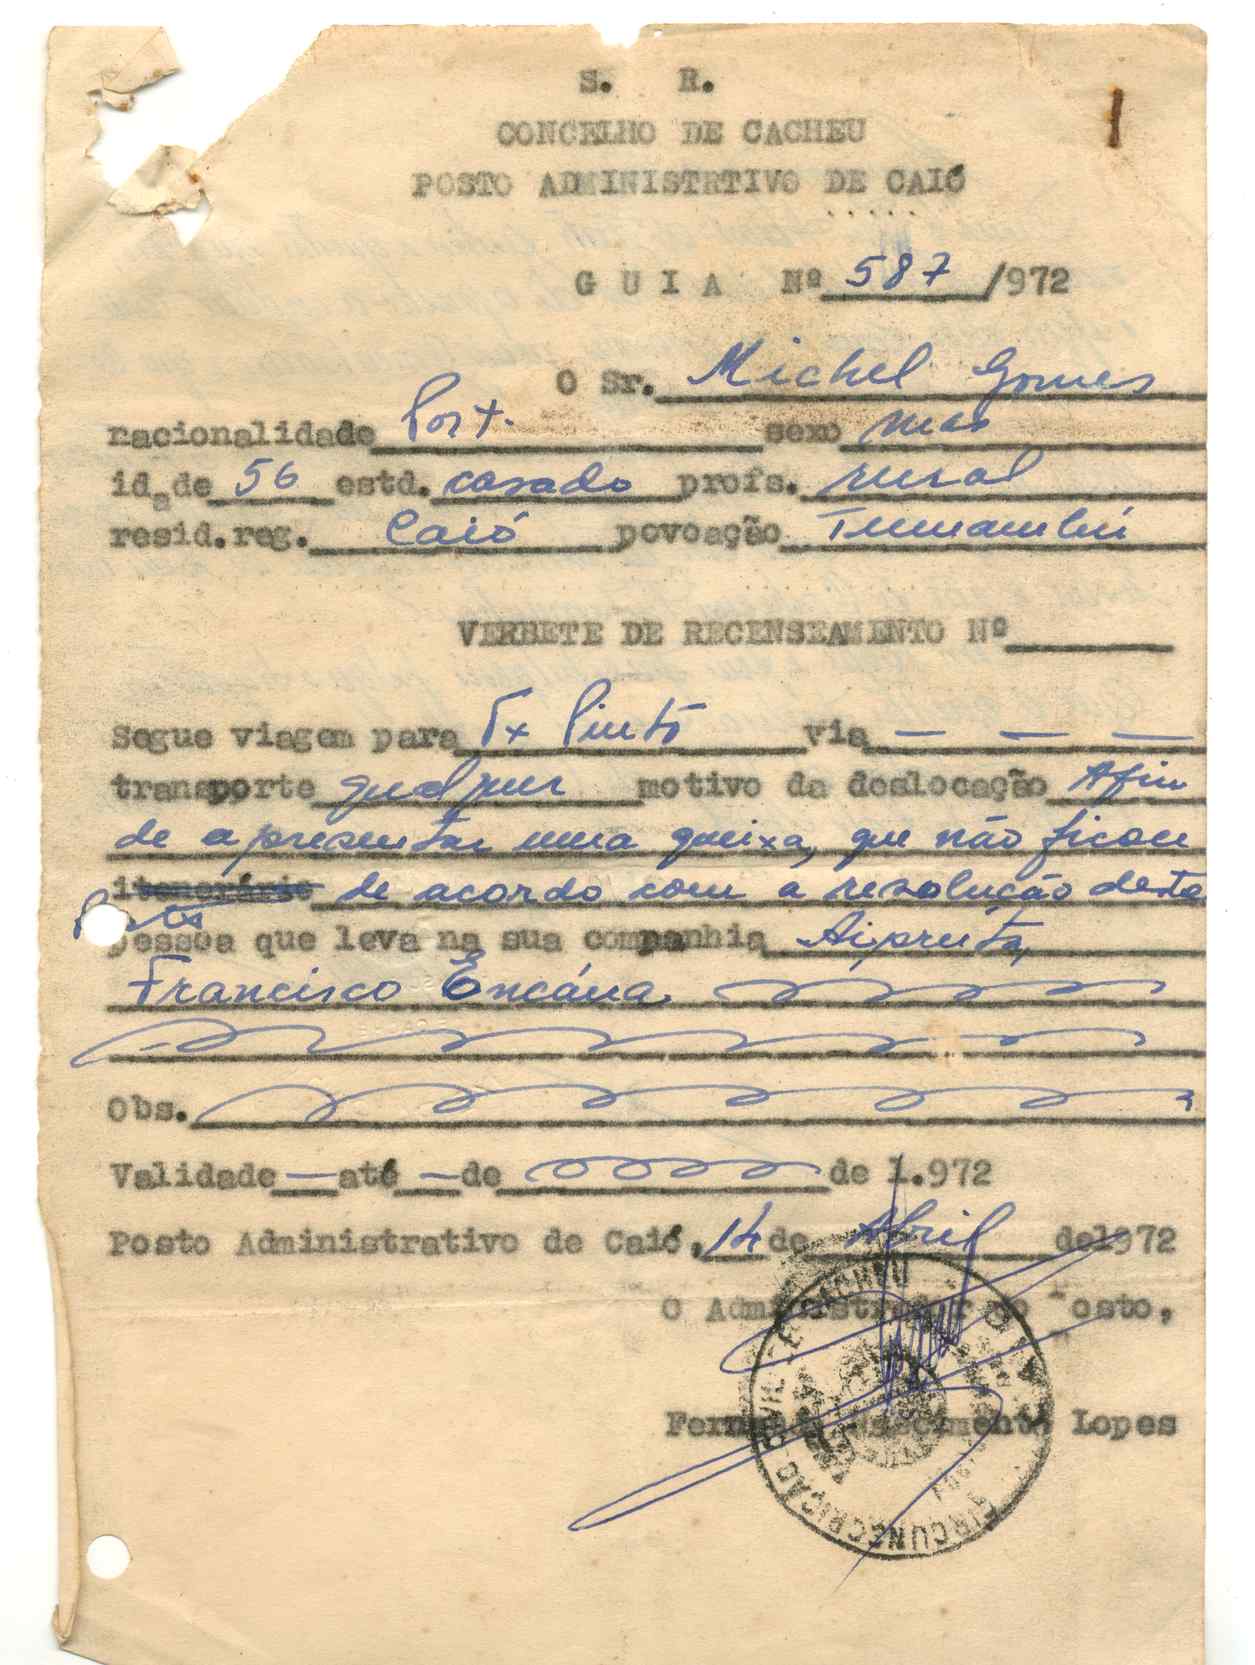 S. R.
CONCELHO DE CACHEU
POSTO ADMINISTRTIVO DE CAIÓ
.....
G U I A Nº 587 /972
O Sr. Michel Gomes
nacionalidade Port. sexo mas
idade 56 estd. casado profs. rural
resid.reg. Caió povoação
VERBETE DE RECENSEAMENTO Nº
Segue viagem para Tx Pinto via — — —
transporte qualquer motivo da deslocação Afim
de apresentar uma queixa, que não ficou
itenerário de acordo com a resolução deste
Posto
pessoa que leva na sua companhia
Francisco Encána
Obs.
Validade — até — de de 1.972
Posto Administrativo de Caió, 14 de Abril de 1972
O Administrador do Posto,
Fernando Nascimento Lopes
CIRCUNSCRIÇÃO CIVIL DE CACHEU
CAIÓ